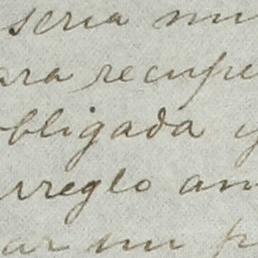 seria mu
ara recupe
obligada y
rreglo am
ar mi p